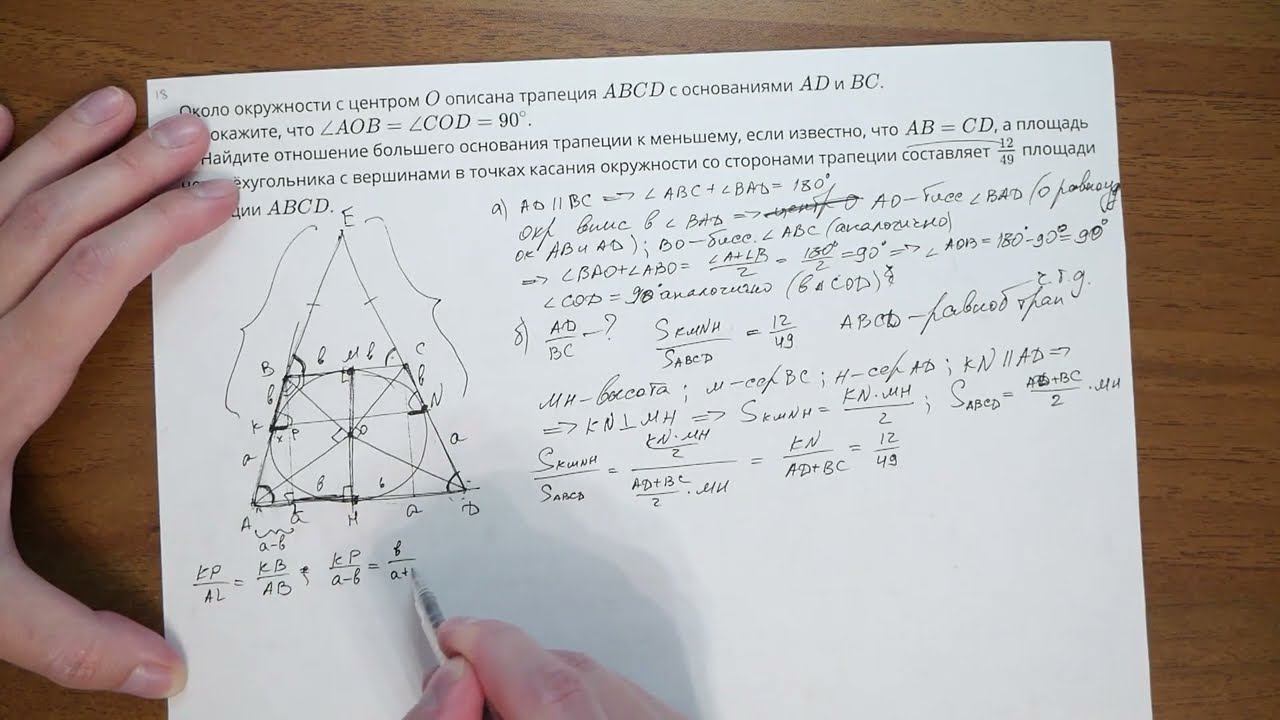 18
Около окружности с центром O описана трапеция ABCD с основаниями AD и BC.
окажите, что ∠AOB = ∠COD = 90°.
Найдите отношение большего основания трапеции к меньшему, если известно, что AB = CD, а площадь
ёхугольника с вершинами в точках касания окружности со сторонами трапеции составляет 12/49 площади
ции ABCD.
а) AD || BC => ∠ABC + ∠BAD = 180°
окр впис в ∠BAD => AO – бисс ∠BAD (O равноуд
ок AB и AD); BO – бисс. ∠ABC (аналогично)
=> ∠BAO + ∠ABO = (∠A+∠B)/2 = 180°/2 = 90° => ∠AOB = 180° - 90° = 90°
∠COD = 90° аналогично (в ΔCOD)
ч.т.д.
б) AD/BC – ? S KMNH / S ABCD = 12/49 ABCD – равноб трап
MH – высота; M – сер BC; H – сер AD; KN || AD =>
=> KN ⊥ MH => S KMNH = KN·MH/2; S ABCD = (AD+BC)/2 · MH
S KMNH / S ABCD = (KN·MH/2) / ((AD+BC)/2 · MH) = KN/(AD+BC) = 12/49
E
B в M в C
в в
K x P N
O
a a
в в
A a H a D
a-в
KP/AL = KB/AB; KP/(a-в) = в/(a+